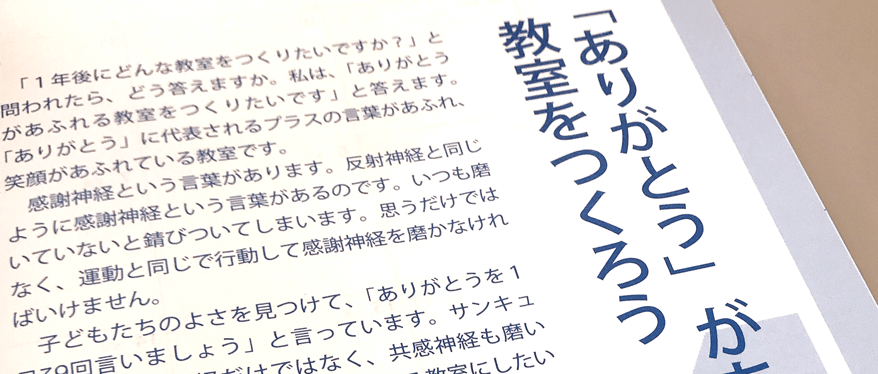 「ありがとう」が
教室をつくろう
「1年後にどんな教室をつくりたいですか？」と
問われたら、どう答えますか。私は、「ありがとう
があふれる教室をつくりたいです」と答えます。
「ありがとう」に代表されるプラスの言葉があふれ、
笑顔があふれている教室です。
感謝神経という言葉があります。反射神経と同じ
ように感謝神経という言葉があるのです。いつも磨
いていないと錆びついてしまいます。思うだけでは
なく、運動と同じで行動して感謝神経を磨かなけれ
ばいけません。
子どもたちのよさを見つけて、「ありがとうを1
39回言いましょう」と言っています。サンキュ
だけではなく、共感神経も磨い
教室にしたい